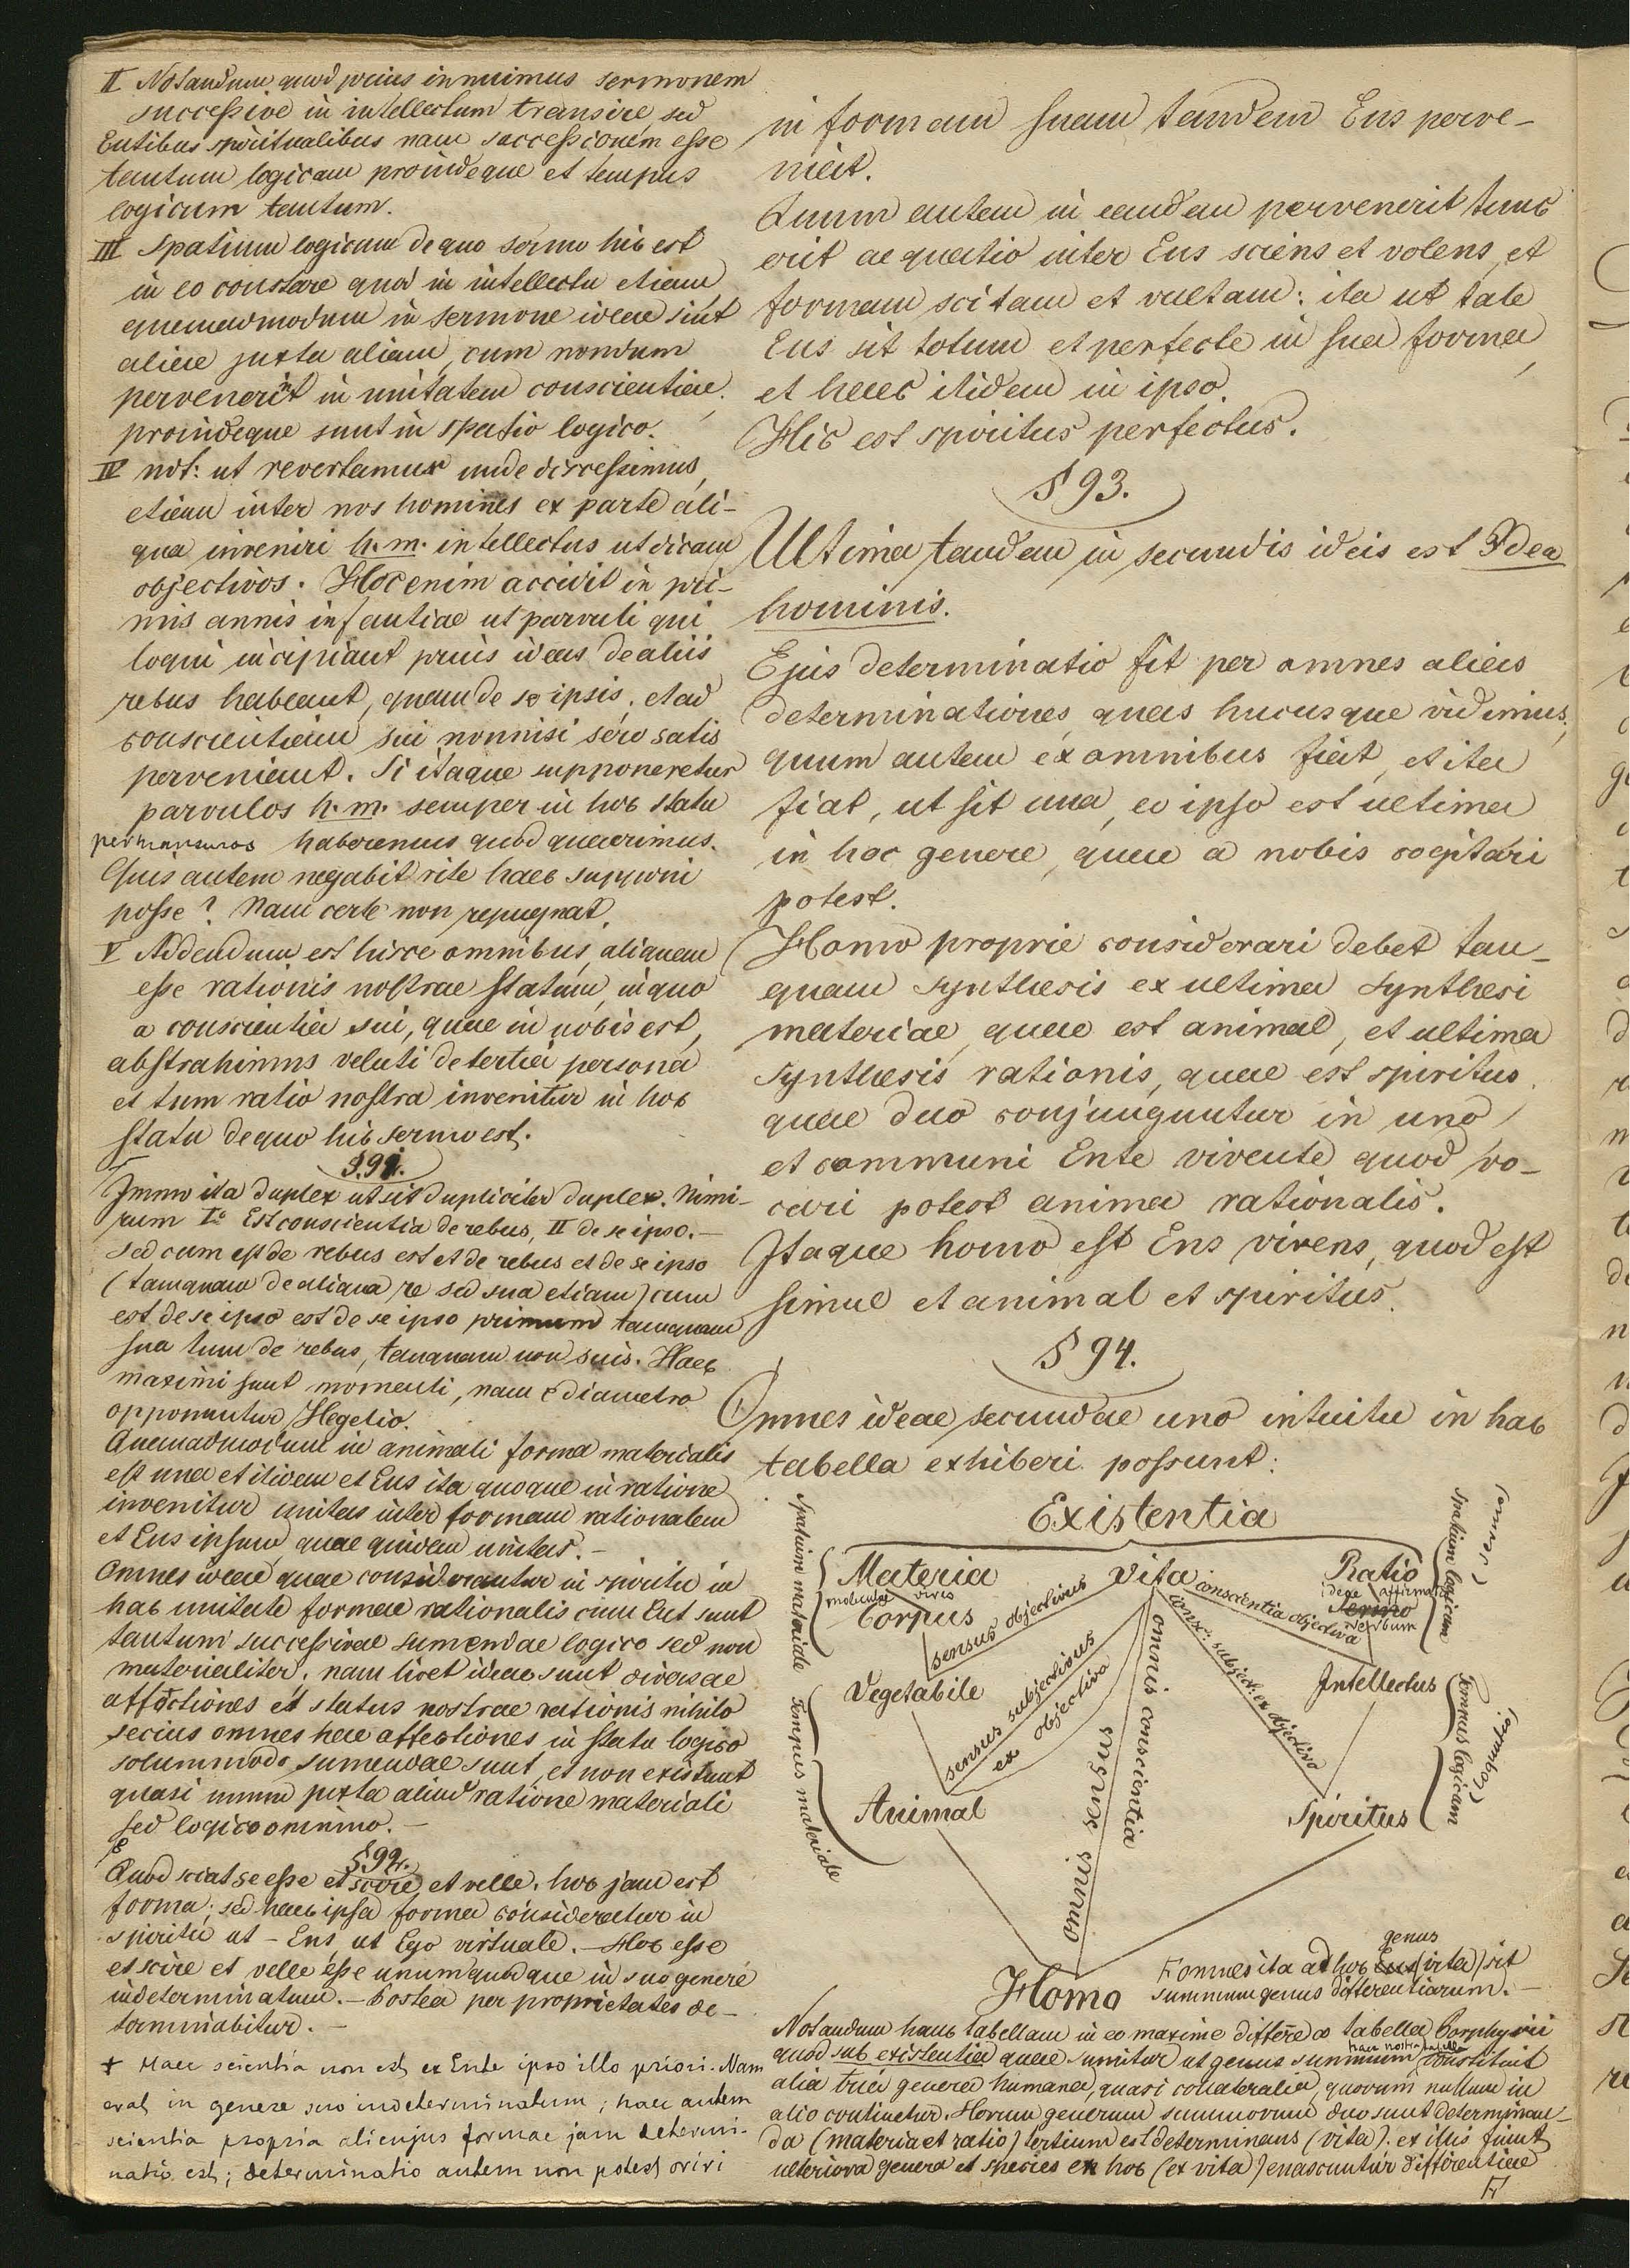 II Notandum, quod prius innuimus sermonem
successive in intellectum transire sed
Entibus spiritualibus nam successionem esse
tantum logicam proindeque et tempus
logicum tantum.
III Spatium logicum de quo sermo hic est
in eo constare quod in intellectu etiam
quemadmodum in sermone ideae sint
aliae juxta aliam, cum nondum
pervenerint in unitatem conscientiae,
proindeque sunt in spatio logico.
IV not: ut revertamur unde digressimus,
etiam inter nos homines ex parte ali-
qua inveniri h.m. intellectus ut dicam
objectivos. Hoc enim accidit in pri-
mis annis infantiae ut parvuli qui
loqui incipiant prius ideas de aliis
rebus habeant, quam de se ipsis, et ad
conscientiam sui nonnisi sero satis
perveniant. Si itaque supponeretur
parvulos h.m. semper in hoc statu
permansuros haberemus quod quaerimus.
Quis autem negabit rite haec supponi
posse? Nam certe non repugnat.
V Addendum est hisce omnibus, aliquem
esse rationis nostrae statum, in quo
a conscientia sui, quae in nobis est,
abstrahimus veluti de tertia persona
et tum ratio nostra invenitur in hoc
statu de quo hic sermo est.
§.91.
Immo ita duplex ut sit dupliciter duplex. Nimi-
rum Iº Est conscientia de rebus, II de se ipso. —
Sed cum est de rebus est et de rebus et de se ipso
(tamquam de aliqua re sed sua etiam) cum
est de se ipso est de se ipso primum tamquam
sua tum de rebus, tamquam non suis. Haec
maximi sunt momenti, nam e diametro
opponuntur Hegelio.
Quemadmodum in animali forma materialis
est una et itidem et Ens ita quoque in ratione
invenitur unitas inter formam rationalem
et Ens ipsum, quae quidem unitas. —
Omnes ideae quae considerantur in spiritu in
hac unitate formae rationalis cum Ente sunt
tantum successivae sumendae logico sed non
materialiter, nam licet ideae sunt diversae
affectiones et status nostrae rationis nihilo
secius omnes hae affectiones in statu logico
solummodo sumendae sunt, et non existunt
quasi unum juxta aliud ratione materiali
sed logico omnino. —
§ 92.
Quod sciat se esse et scire et velle, hoc jam est
forma; sed haec ipsa forma consideratur in
spiritu ut – Ens ut Ego virtuale. — Hoc esse
et scire et velle esse unumquodque in suo genere
indeterminatum. — Postea per proprietates de-
terminabitur. —
+ Haec scientia non est ex Ente ipso illo priori. Nam
erat in genere suo indeterminatum; haec autem
scientia propria alicujus formae jam determi-
natio est; determinatio autem non potest oriri
in formam suam tandem Ens perve-
niat.
Quum autem in eandem pervenerit tunc
erit aequatio inter Ens sciens et volens, et
formam scitam et vultam: ita ut tale
Ens sit totum et perfecte in sua forma,
et haec itidem in ipso.
Hic est spiritus perfectus.
§ 93.
Ultima tandem in secundis ideis est Idea
hominis.
Ejus determinatio fit per omnes alias
determinationes, quas hucusque vidimus,
quum autem ex omnibus fiat, et ita
fiat, ut sit una, eo ipso est ultima
in hoc genere, quae a nobis cogitari
potest.
Homo proprie considerari debet tan-
quam synthesis ex ultima synthesi
materiae, quae est animal, et ultima
synthesis rationis, quae est spiritus,
quae duo conjunguntur in uno
et communi Ente vivente quod vo-
cari potest anima rationalis.
Itaque homo est Ens vivens, quod est
simul et animal et spiritus.
§ 94.
Omnes ideae secundae uno intuitu in hac
tabella exhiberi possunt:
Existentia
Materia Vita Ratio
moleculae vires
Corpus
ideae affirmatio
Sermo
Verbum
Spatium materiale
Tempus materiale
Spatium logicum
(sermo)
Tempus logicum
(loquutio)
sensus objectivus
conscientia objectiva
Vegetabile
Intellectus
sensus subjectivus
ex objectiva
consc: subject: ex objectivo
omnis sensus
omnis conscientia
Animal
Spiritus
Homo
F omnes ita ad hoc Ens genus (vita) sit
summum genus differentiarum. —
Notandum hanc tabellam in eo maxime differre a tabella Porphyrii
quod sub existentia quae sumitur ut genus summum haec nostra tabella constituit
alia tria genera humana, quasi collateralia, quorum nullum in
alio continetur. Horum generum summorum duo sunt determinan-
da (materia et ratio) tertium est determinans (vita): ex illis fiunt
ulteriora genera et species ex hoc (ex vita) enascuntur differentiae
F